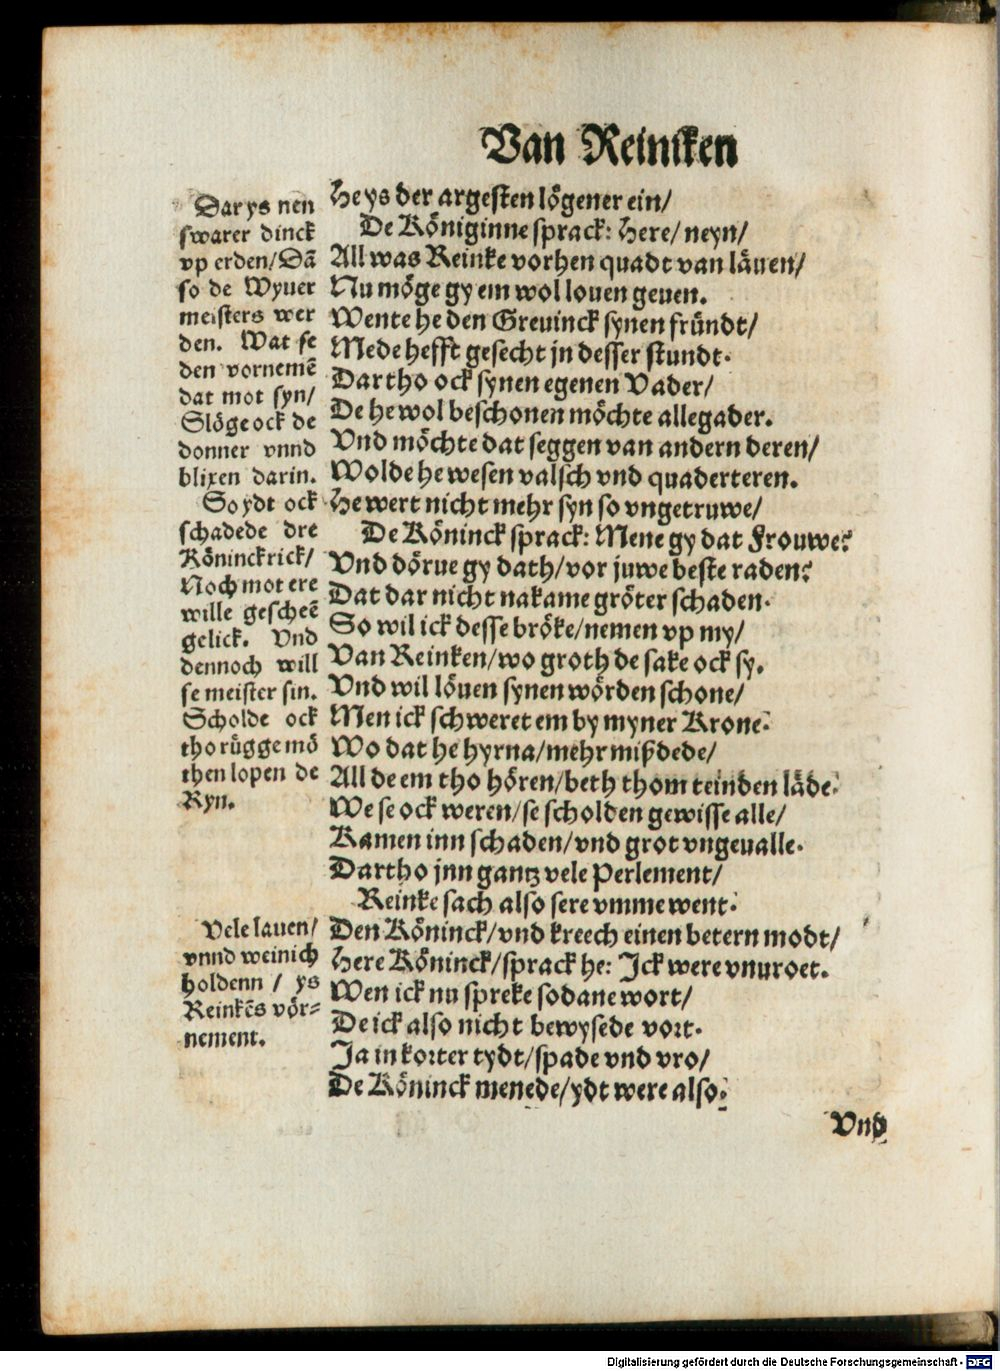 Van Reinıken
He ys der argesten lögener ein/
De Königinne sprack: Here/ neyn/
All was Reinke vorhen quadt van läuen/
Nu möge gy em wol louen geuen.
Wente he den Greuinck synen fründt/
Mede hefft gesecht jn desser stundt.
Dartho ock synen egenen Vader/
De he wol beschonen möchte allegader.
Vnd möchte dat seggen van andern deren/
Wolde he wesen valsch vnd quaderteren.
He wert nicht mehr syn so vngetruwe/
De Köninck sprack: Mene gy dat Frouwe?
Vnd dörue gy dath/vor juwe beste raden?
Dat dar nicht nakame gröter schaden.
So wil ick desse bröke/nemen vp my/
Van Reinken/wo groth de sake ock sy.
Vnd wil löuen synen wörden schone/
Men ick schweret em by myner Krone.
Wo dat he hyrna/mehr mißdede/
All de em tho hören/beth thom teinden läde.
We se ock weren/se scholden gewisse alle/
Kamen inn schaden/vnd grot vngeualle.
Dartho jnn gantz vele Perlement/
Reinke sach also sere vmme went.
Den Köninck/vnd kreech einen betern modt/
Here Köninck/sprack he: Ick were vnuroet.
Wen ick nu spreke sodane wort/
De ick also nicht bewysede vort.
Ja in korter tydt/spade vnd vro/
De Köninck menede/ydt were also.
Vnd
Dar ys nen
swarer dinck
vp erden/Dā
so de Wyuer
meisters wer
den. Wat se
den vornemē
dat mot syn/
Slöge ock de
donner vnnd
blixen darin.
So ydt ock
schadede dre
Köninckrick/
Noch mot ere
wille gescheē
gelick. Vnd
dennoch will
se meister sin.
Scholde ock
tho rügge mö
then lopen de
Ryn.
Vele lauen/
vnnd weinich
holdenn / ys
Reinkēs vör=
nement.
Digitalisierung gefördert durch die Deutsche Forschungsgemeinschaft - DFG